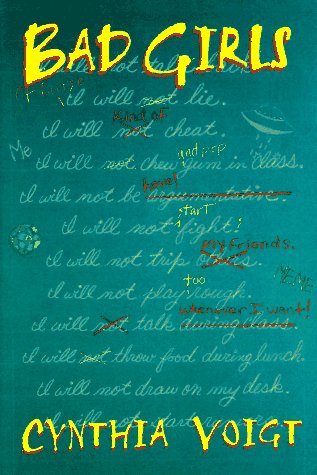 BAD GIRLS
I will not talk
I will not lie.
Kind of
I will not cheat.
Me
and pop
I will not chew gum in class.
I will not be argumentative.
start
I will not fight!
my friends.
I will not trip
ME ME
too
I will not play rough.
whenever I want!
I will not talk
I will not throw food during lunch.
I will not draw on my desk.
I will not start
CYNTHIA VOIGT